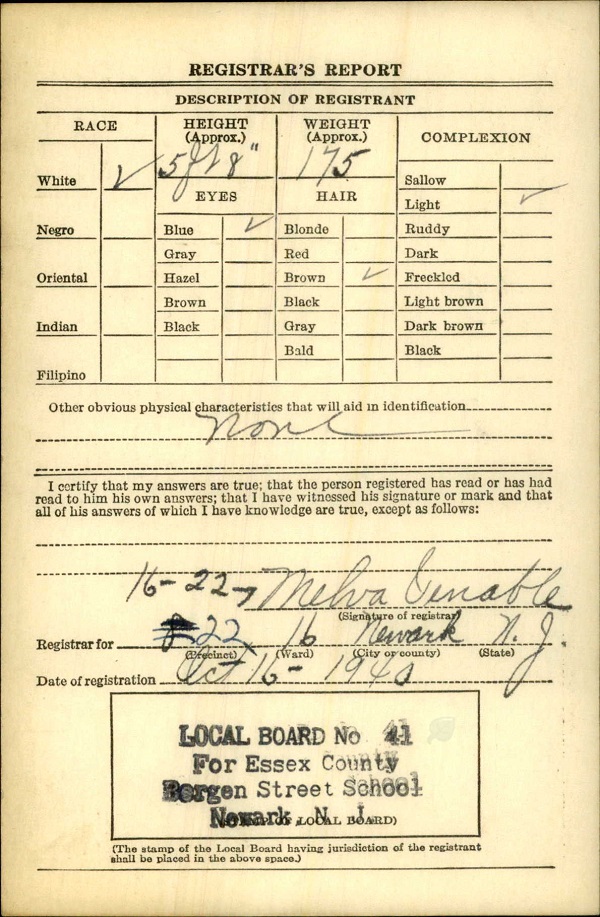 REGISTRAR'S REPORT
DESCRIPTION OF REGISTRANT
RACE
HEIGHT (Approx.)
WEIGHT (Approx.)
COMPLEXION
5 ft 8"
175
White ✓
EYES
HAIR
Sallow
Light ✓
Negro
Blue ✓
Blonde
Ruddy
Gray
Red
Dark
Oriental
Hazel
Brown ✓
Freckled
Brown
Black
Light brown
Indian
Black
Gray
Dark brown
Bald
Black
Filipino
Other obvious physical characteristics that will aid in identification
None
I certify that my answers are true; that the person registered has read or has had
read to him his own answers; that I have witnessed his signature or mark and that
all of his answers of which I have knowledge are true, except as follows:
16-22- Melva Venable
(Signature of registrar)
Registrar for 22 16 Newark N. J.
(Precinct) (Ward) (City or county) (State)
Date of registration Oct 16 - 1940
LOCAL BOARD No 41
For Essex County
Bergen Street School
Newark, N. J.
(STAMP OF LOCAL BOARD)
(The stamp of the Local Board having jurisdiction of the registrant
shall be placed in the above space.)